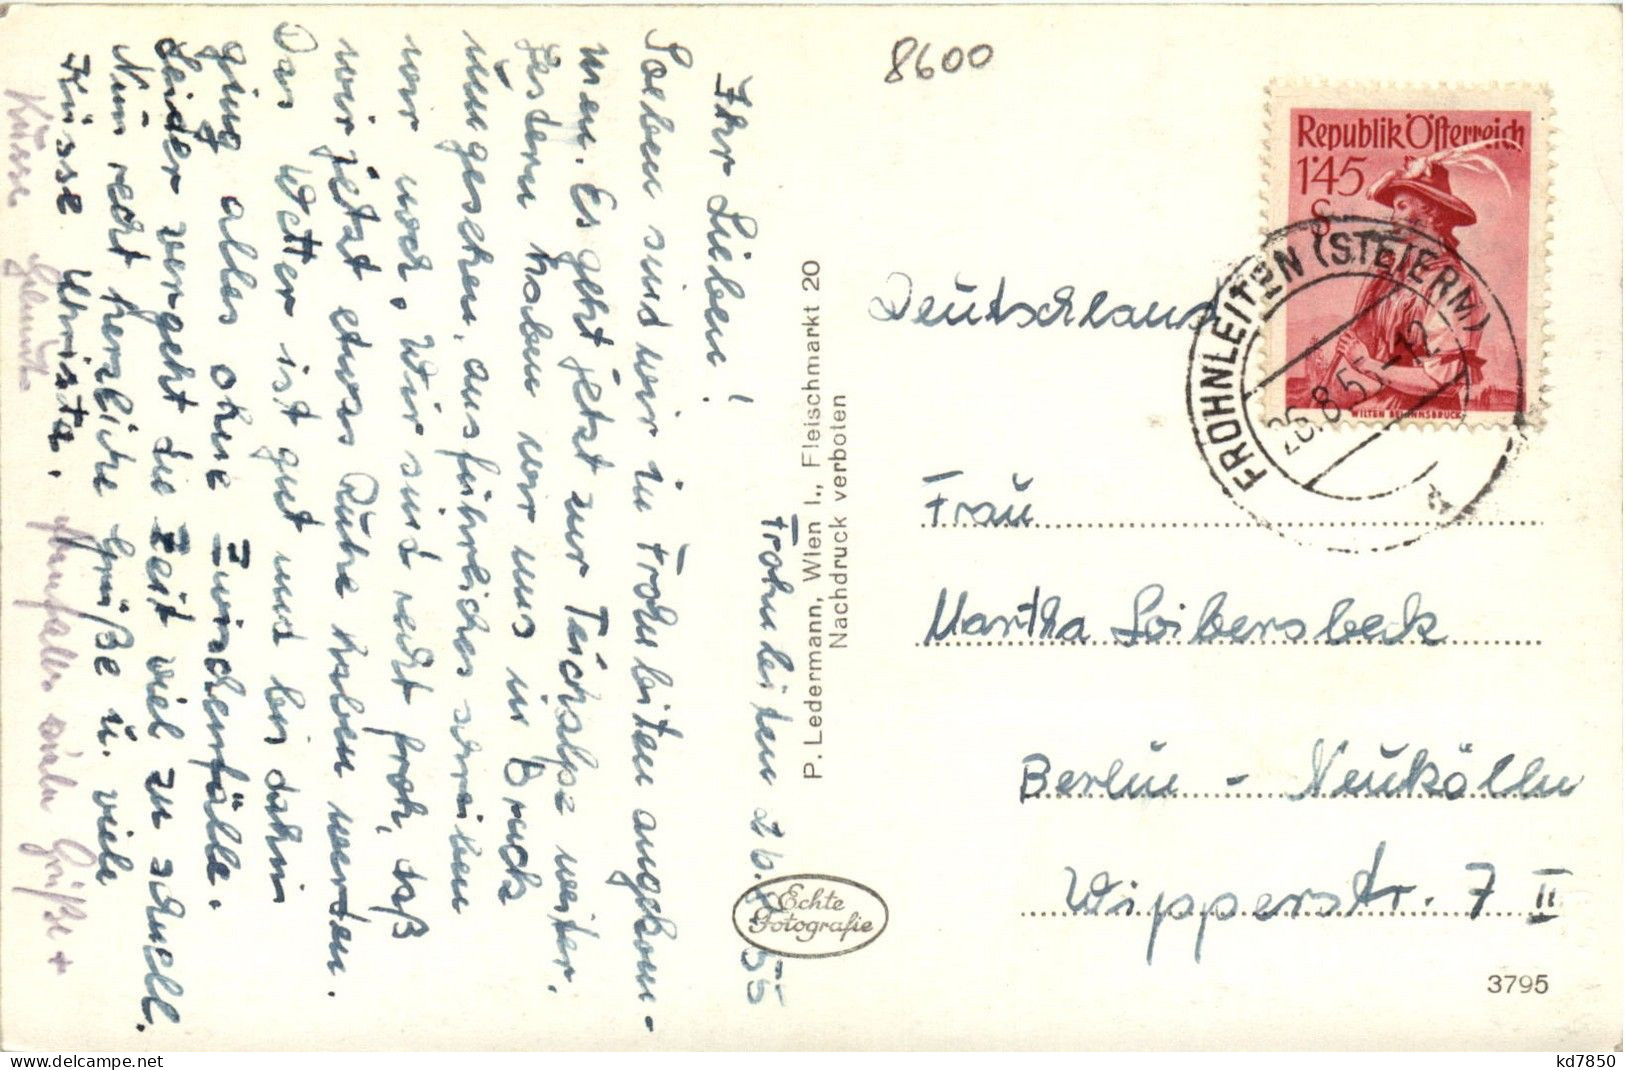 Frohnleiten 26. 8. 55
Ihr Lieben!
Soeben sind wir in Frohnleiten angekom-
men. Es geht jetzt zur Teichalpe weiter.
Gestern haben wir uns in Bruck
umgesehen, ausführliches schreiben
wir noch. Wir sind recht froh, daß
wir jetzt etwas Ruhe haben werden.
Das Wetter ist gut und bis dahin
ging alles ohne Zwischenfälle.
Leider vergeht die Zeit viel zu schnell.
Nun recht herzliche Grüße u. viele
Küsse Christa.
viele Grüße +
Küsse
8600
P. Ledermann, Wien I., Fleischmarkt 20
Nachdruck verboten
Echte
Fotografie
Republik Österreich
1·45
S
FROHNLEITEN (STEIERM)
26.8.55-12
Deutschland
Frau
Martha Loibersbeck
Berlin - Neukölln
Wipperstr. 7 II
3795
www.delcampe.net
kd7850